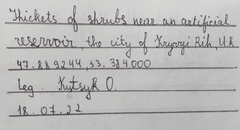 Thickets of shrubs near an artificial
reservoir, the city of Kryvyi Rih, UA
47.889244, 33.384000
Leg. Kutsyk O.
18.07.22